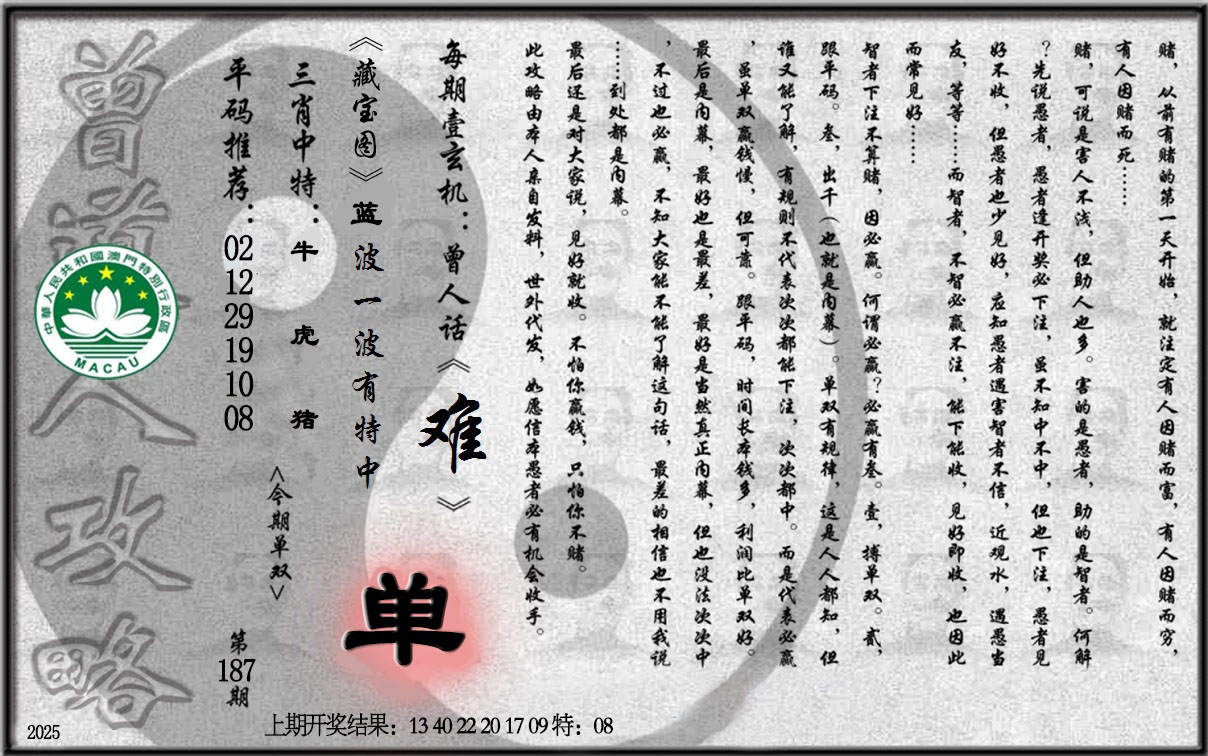 赌，从前有赌的第一天开始，就注定有人因赌而富，有人因赌而穷，
有人因赌而死……
赌，可说是害人不浅，但助人也多。害的是愚者，助的是智者。何解
？先说愚者，愚者逢开奖必下注，虽不知中不中，但也下注，愚者见
好不收，但愚者也少见好，应知愚者遇害智者不信，近观水，遇愚当
友，等等……而智者，不智必赢不注，能下能收，见好即收，也因此
而常见好……
智者下注不算赌，因必赢。何谓必赢？必赢有叁。壹，搏单双。贰，
跟平码。叁，出千（也就是内幕）。单双有规律，这是人人都知，但
谁又能了解，有规则不代表次次都能下注，次次都中。而是代表必赢
，虽单双赢钱慢，但可靠。跟平码，时间长本钱多，利润比单双好。
最后是内幕，最好也是最差，最好是当然真正内幕，但也没法次次中
，不过也必赢，不知大家能不能了解这句话，最差的相信也不用我说
……到处都是内幕。
最后还是对大家说，见好就收。不怕你赢钱，只怕你不赌。
此攻略由本人亲自发料，世外代发，如愿信本愚者必有机会收手。
每期壹玄机：曾人话《难》
《藏宝图》蓝波一波有特中
单
三肖中特：牛 虎 猪
<今期单双>
平码推荐：02 12 29 19 10 08
第187期
曾道人攻略
中華人民共和國澳門特別行政區
MACAU
2025
上期开奖结果：13 40 22 20 17 09 特：08